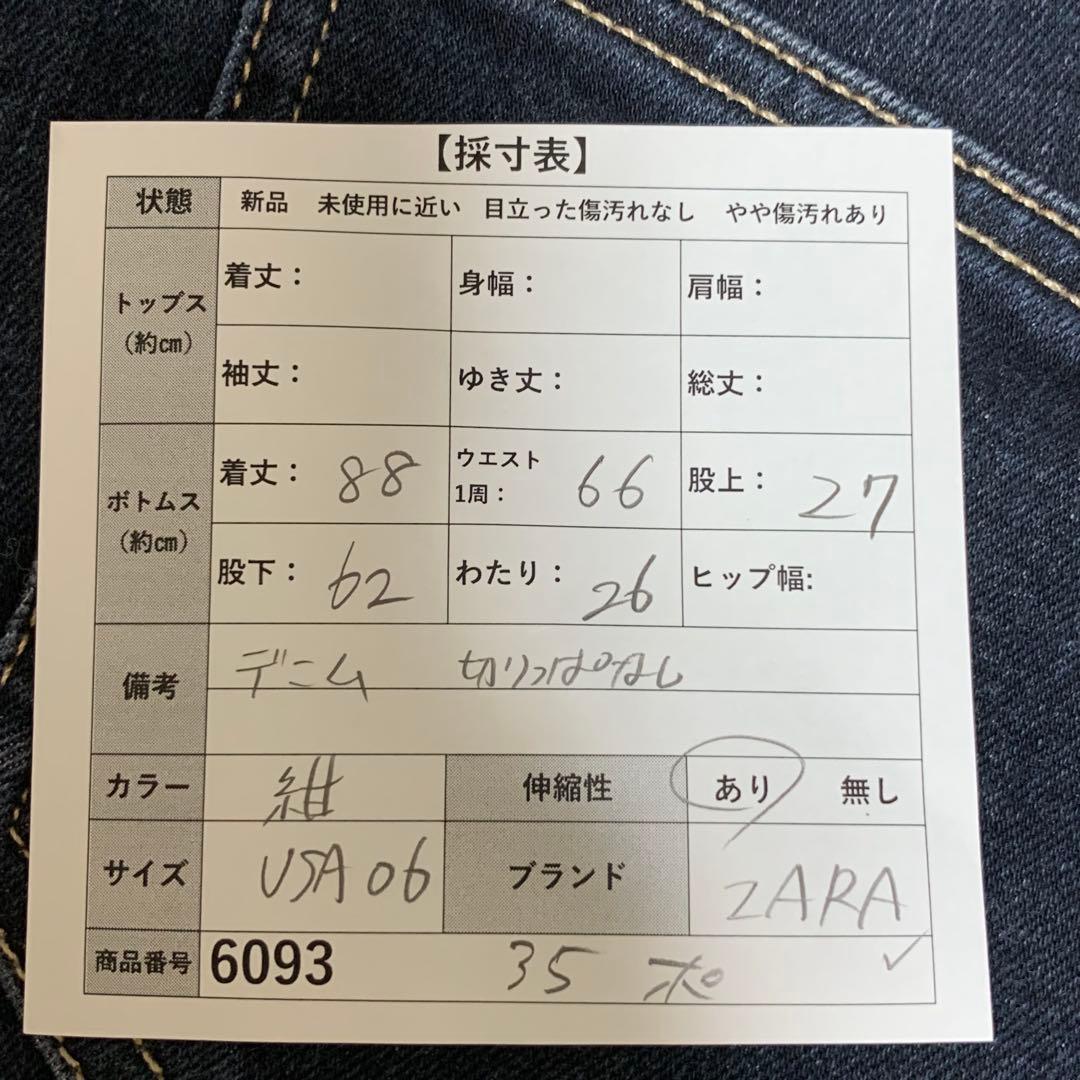 【採寸表】
状態 新品 未使用に近い 目立った傷汚れなし やや傷汚れあり
トップス(約㎝)
着丈： 身幅： 肩幅：
袖丈： ゆき丈： 総丈：
ボトムス(約㎝)
着丈： 88 ウエスト1周： 66 股上： 27
股下： 62 わたり： 26 ヒップ幅:
備考 デニム 切りっぱなし
カラー 紺 伸縮性 あり 無し
サイズ USA 06 ブランド ZARA
商品番号 6093 35 ポ